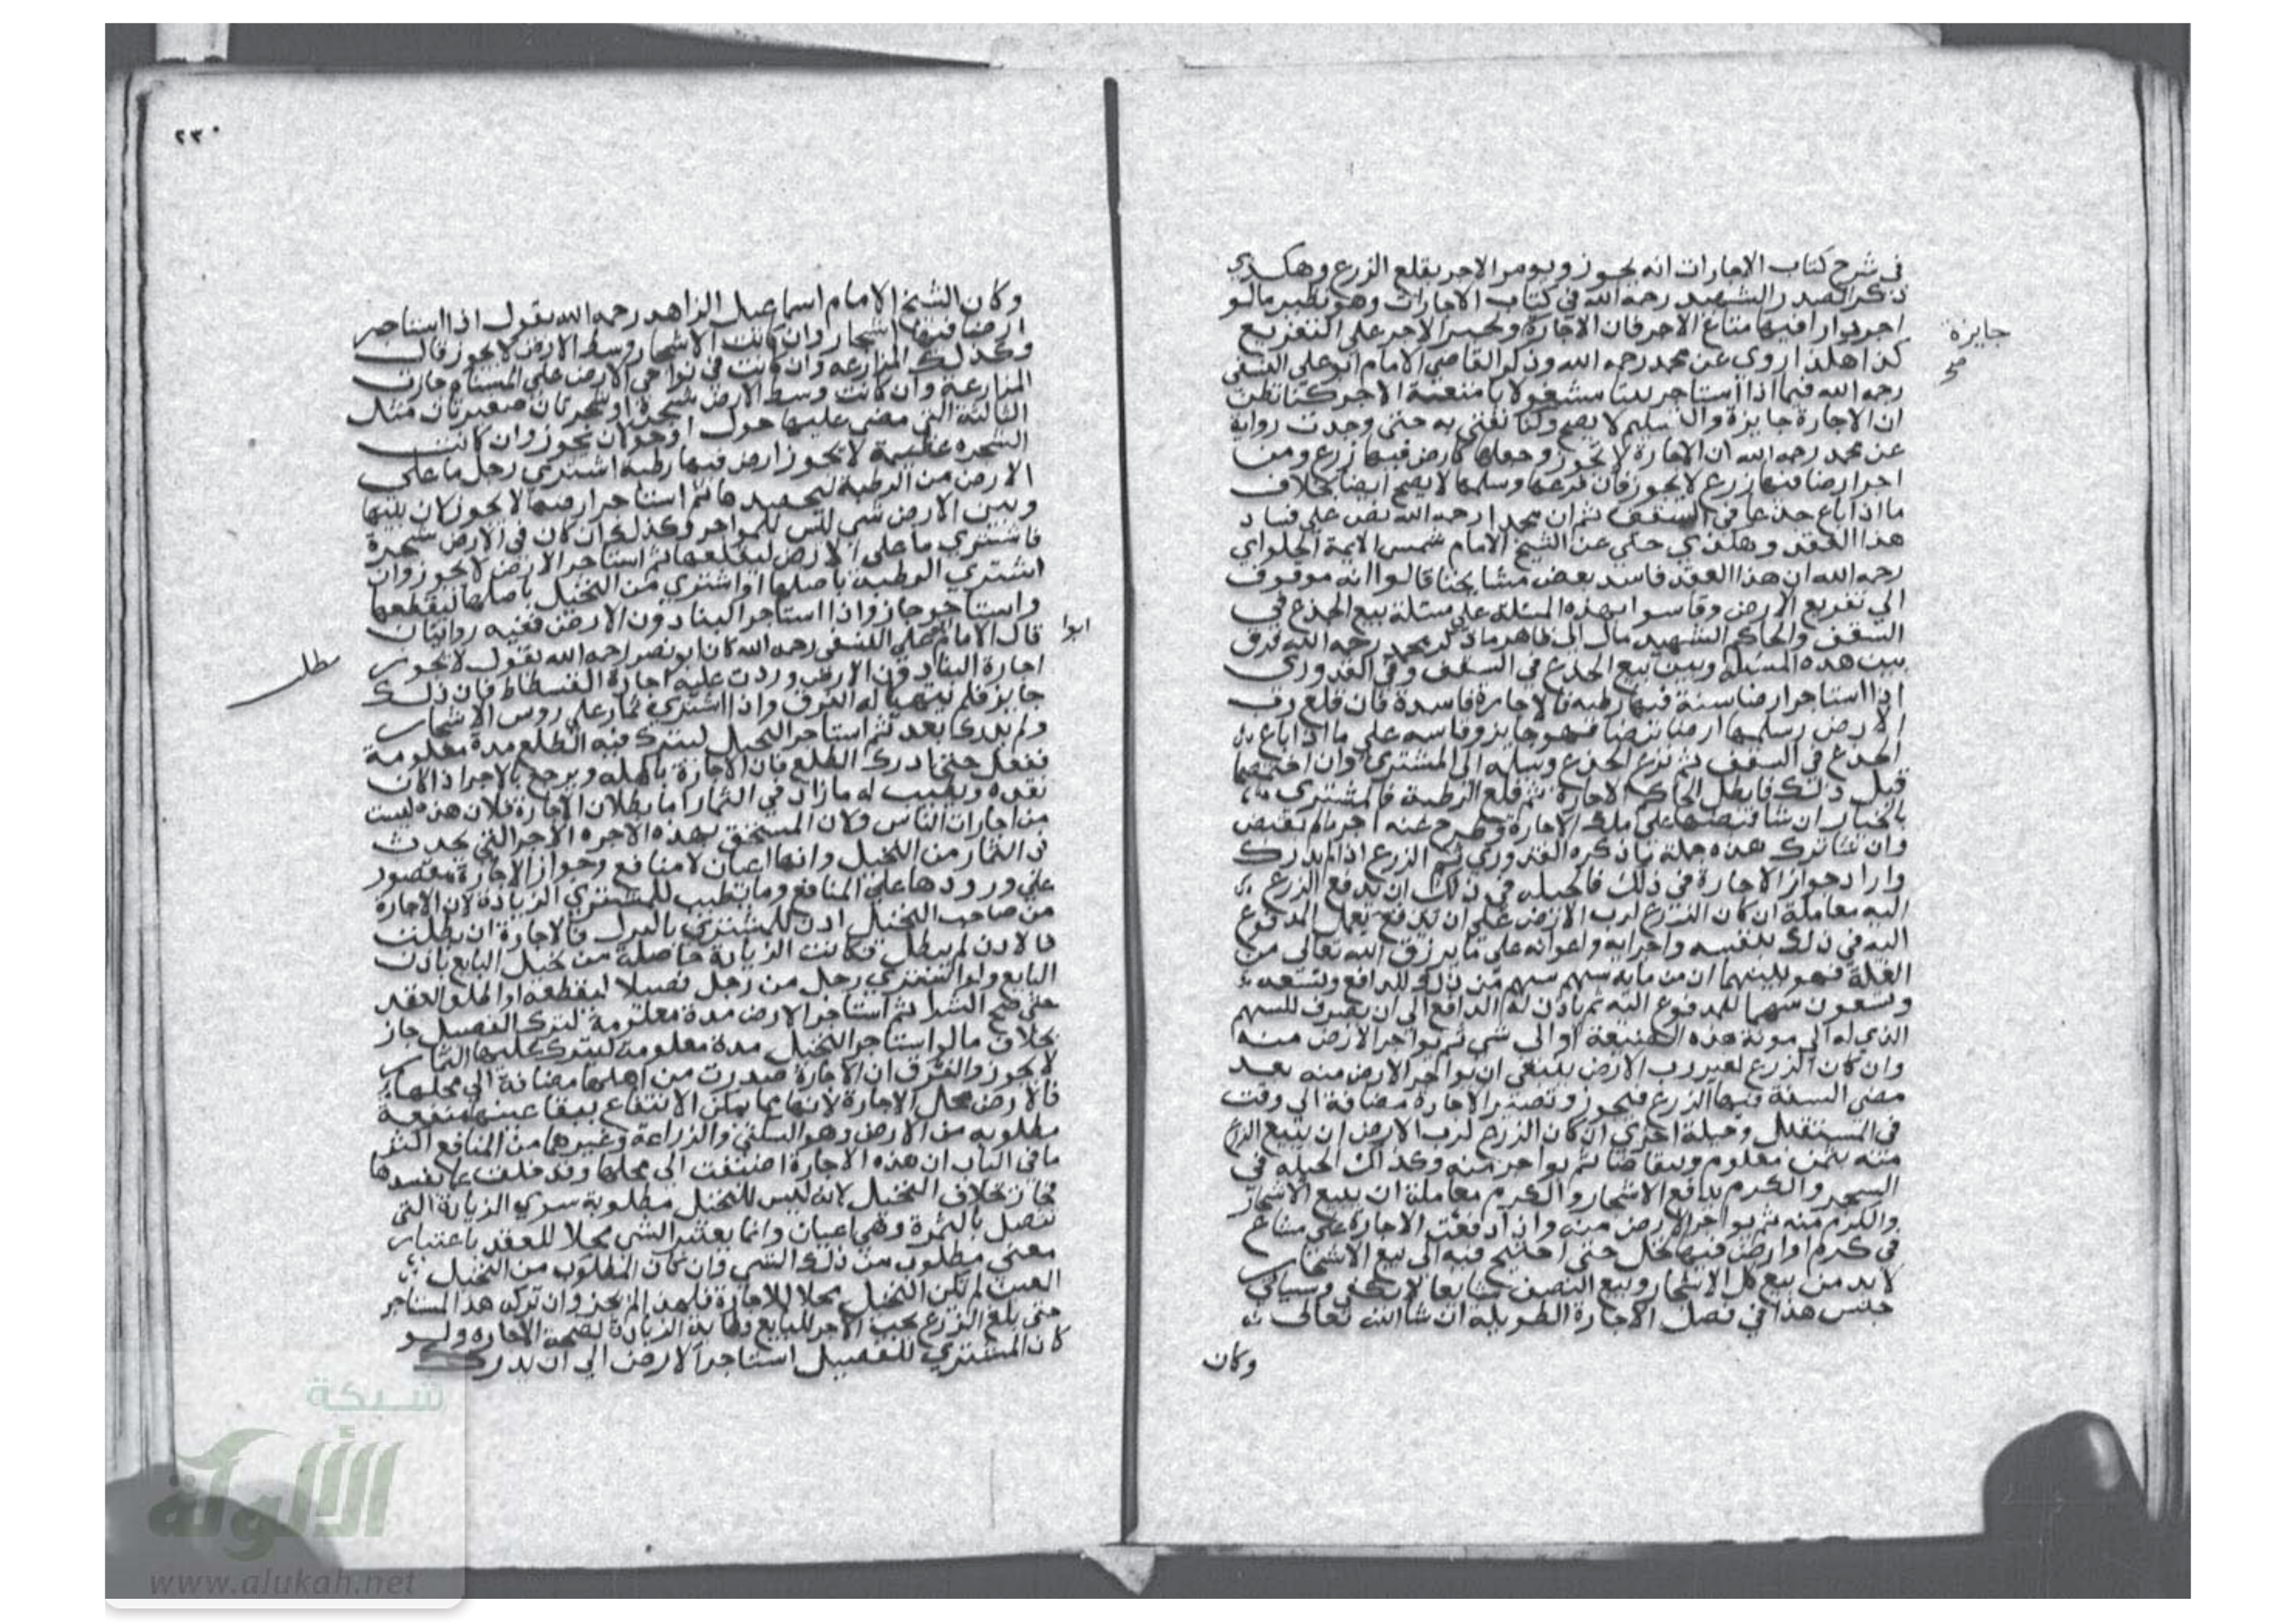 في شرح كتاب الاجارات انه يجوز ويومر الاجر بقلع الزرع وهكذي
ذكر الصدر الشهيد رحمه الله في كتاب الاجارات وهو نظير مالو
اجر دارا فيها متاع الاجر فان الاجارة ويجبر الاجر على التفريغ
جايزة
صح
كذا هكذا روى عن محمد رحمه الله وذكر القاضي الامام ابو علي النسفي
رحمه الله فيما اذا استاجر بيتا مشغولا بامتعة الاجر كنا نظن
ان الاجارة جايزة والتسليم لا يصح وكنا نفتي به حتى وجدت رواية
عن محمد رحمه الله ان الاجارة لا تجوز وجعلها كارض فيها زرع ومن
اجر ارضا فيها زرع لا يجوز فان فرغها وسلمها لا يصح ايضا بخلاف
ما اذا باع جذعا في السقف ثم ان محمدا رحمه الله نص على فساد
هذا العقد وهكذي حكي عن الشيخ الامام شمس الايمة الحلواي
رحمه الله ان هذا العقد فاسد بعض مشايخنا قالوا انه موقوف
الي تفريغ الارض وقاسوا بهذه المسئلة على مسئلة بيع الجذع في
السقف والحاكم الشهيد مال الى ظاهر ما ذكر محمد رحمه الله فرق
بين هذه المسئلة وبين بيع الجذع في السقف وفي القدوري
اذا استاجر ارضا سنة فيها رطبه فالاجارة فاسدة فان قلع رب
الارض وسلمها ارضا بيضا فهو جايز وقاسه على ما اذا باع
الجذع في السقف ثم نزع الجذع وسلمه الى المشتري وان اختصما
قبل ذلك فابطل الحاكم الاجارة ثم قلع الرطبة فالمشتري
بالخيار ان شا قبضها على تلك الاجارة وطرح عنه اجر ما لم يقبض
وان شا ترك هذه جملة ما ذكره القدوري ثم الزرع اذا لم يدرك
وارادجواز الاجارة في ذلك فالحيله في ذلك ان يدفع الزرع
اليه معاملة ان كان الزرع لرب الارض على ان يعمل المدفوع
اليه في ذلك بنفسه واجرايه واعوانه على ما يرزق الله تعالى من
الغلة فهو بينهما ان من مايه سهم سهم من ذلك للدافع وتسعة
وتسعون سهما للمدفوع اليه ثم ياذن له الدافع الى ان يصرف السهم
الذي له الى مونة هذه الضيعة او الى شي ثم يواجر الارض منه
وان كان الزرع لغير رب الارض ينبغي ان يواجر الارض منه بعد
مضي السنة فيها الزرع فيجوز وتصير الاجارة مضافة الى وقت
في المستقبل وحيلة اخري ان كان الزرع لرب الارض ان يبيع الزرع
منه بثمن معلوم ويتقابضا ثم يواجر منه وكذلك الحيله في
الشجر والكرم يدفع الاشجار والكرم معاملة او يبيع الاشجار
والكرم منه ثم يواجر الارض منه واذا دفعت الاجارة على مشاع
في كرم او ارض فيها نخل حتى احتيج فيه الى بيع الاشجار
لا بد من بيع كل الاشجار وبيع النصف شايعا لا يكفي وسياتي
جنس هذا في فصل الاجارة الطويلة ان شا الله تعالى
وكان
٢٣٠
وكان الشيخ الامام اسماعيل الزاهد رحمه الله يقول اذا استاجر
ارضا فيها اشجار وان كانت الاشجار وسط الارض لا يجوز قال
وكذلك المزارعة وان كانت في نواحي الارض على المسناة جازت
المزارعة وان كانت وسط الارض شجرة او شجرتان صغيرتان مثل
التالتة التي مضى عليها حول او حولان يجوز وان كانت
الشجره عظيمة لا يجوز ارض فيها رطبة اشتري رجل ما على
الارض من الرطبة ليحصدها ثم استاجر ارضها لا يجوز لان بينها
وبين الارض شي ليس للمواجر وكذلك ان كان في الارض شجرة
فاشتري ما على الارض ليقلعها ثم استاجر الارض لا يجوز وان
اشتري الرطبة باصلها او اشتري من النخيل باصلها ليقطعها
واستاجر جاز واذا استاجر البنا دون الارض ففيه روايتان
ابوا
قال الامام علي النسفي رحمه الله كان ابو نصر رحمه الله يقول لا يجوز
مطلب
اجارة البنا دون الارض وردت عليه اجارة الفسطاط فان ذلك
جايز فلم يتهيا له الفرق واذا اشتري ثمار على روس الاشجار
ولم يدرك بعد ثم استاجر النخيل ليترك فيه الطلع مدة معلومة
ففعل حتى ادرك الطلع فان الاجارة باطله ويرجع بالاجر ان كان
نقده ويطيب له ما زاد في الثمار اما بطلان الاجارة فلان هذه ليست
من اجارات الناس ولان المستحق بهذه الاجره الاجر التي تحدث
في الثمار من النخيل وانها اعيان لا منافع وجواز الاجارة مقصور
على ورودها على المنافع وما يطيب للمشتري الزيادة لان الاجارة
من صاحب النخيل اذن للمشتري بالترك فالاجارة ان بطلت
فالاذن لم يبطل فكانت الزيادة حاصلة من نخيل البايع باذن
البايع ولو اشتري رجل من رجل فصيلا ليقطعه او اطلق العقد
حتى صح الشرا ثم استاجر الارض مدة معلومة ليترك الفصيل جاز
بخلاف ما لو استاجر النخيل مدة معلومة ليترك عليها الثمار
لا يجوز والفرق ان الاجارة صدرت من اهلها مضافة الى محلها
فالارض محل الاجارة لانها مما يمكن الانتفاع ببقا عينها منفعة
مطلوبه من الارض وهو السكنى والزراعة وغيرهما من المنافع
ما في الباب ان هذه الاجارة اضيفت الى محلها وقد خلت عما يفسدها
بخلاف النخيل لانه ليس للنخيل مطلوبة سوي الزيادة التي
تتصل بالثمرة وهي اعيان وانما يعتبر الشي محلا للعقد باعتبار
معنى مطلوب من ذلك الشي وان كان المطلوب من النخيل
العين لم تكن النخيل محلا للاجارة فلهذا لم يجز وان تركه هذا المستاجر
حتى بلغ الزرع يجب الاجر للبايع وطابت الزيادة لصحة الاجاره ولو
كان المشتري للفصيل استاجر الارض الى ان يدرك
شبكة
الألوكة
www.alukah.net